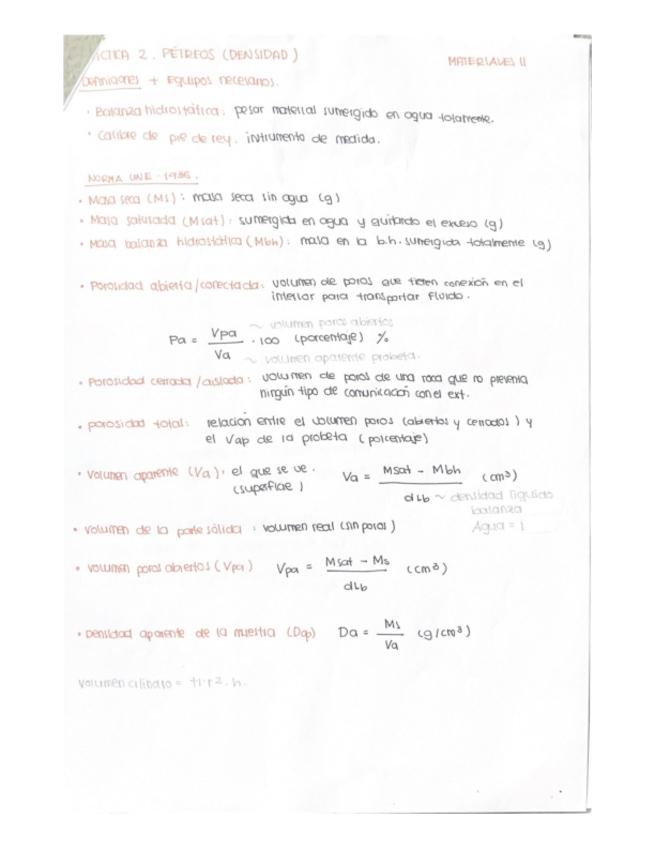 CTICA 2. PÉTREOS (DENSIDAD)
MATERIALES II
Definiciones + Equipos necesarios.
· Balanza hidrostática: pesar material sumergido en agua totalmente.
· Calibre de pie de rey. intrumento de medida.
NORMA UNE - 1936.
· Masa seca (Ms): masa seca sin agua (g)
· Masa saturada (Msat): sumergida en agua y quitando el exceso (g)
· Masa balanza hidrostática (Mbh): masa en la b.h. sumergida totalmente (g)
· Porosidad abierta/conectada: volumen de poros que tienen conexión en el
interior para transportar fluido.
Pa = Vpa / Va · 100 (porcentaje) %
~ volumen poros abiertos
~ volumen aparente probeta.
· Porosidad cerrada/aislada: volumen de poros de una roca que no presenta
ningún tipo de comunicación con el ext.
· porosidad total: relación entre el volumen poros (abiertos y cerrados) y
el Vap de la probeta (porcentaje)
· Volumen aparente (Va): el que se ve.
(superficie)
Va = Msat - Mbh / dLb (cm³)
~ densidad líquido
balanza
Agua = 1
· Volumen de la parte sólida: volumen real (sin poros)
· Volumen poros abiertos (Vpa) Vpa = Msat - Ms / dLb (cm³)
· Densidad aparente de la muestra (Dap) Da = Ms / Va (g/cm³)
Volumen cilindro = π·r2.h.